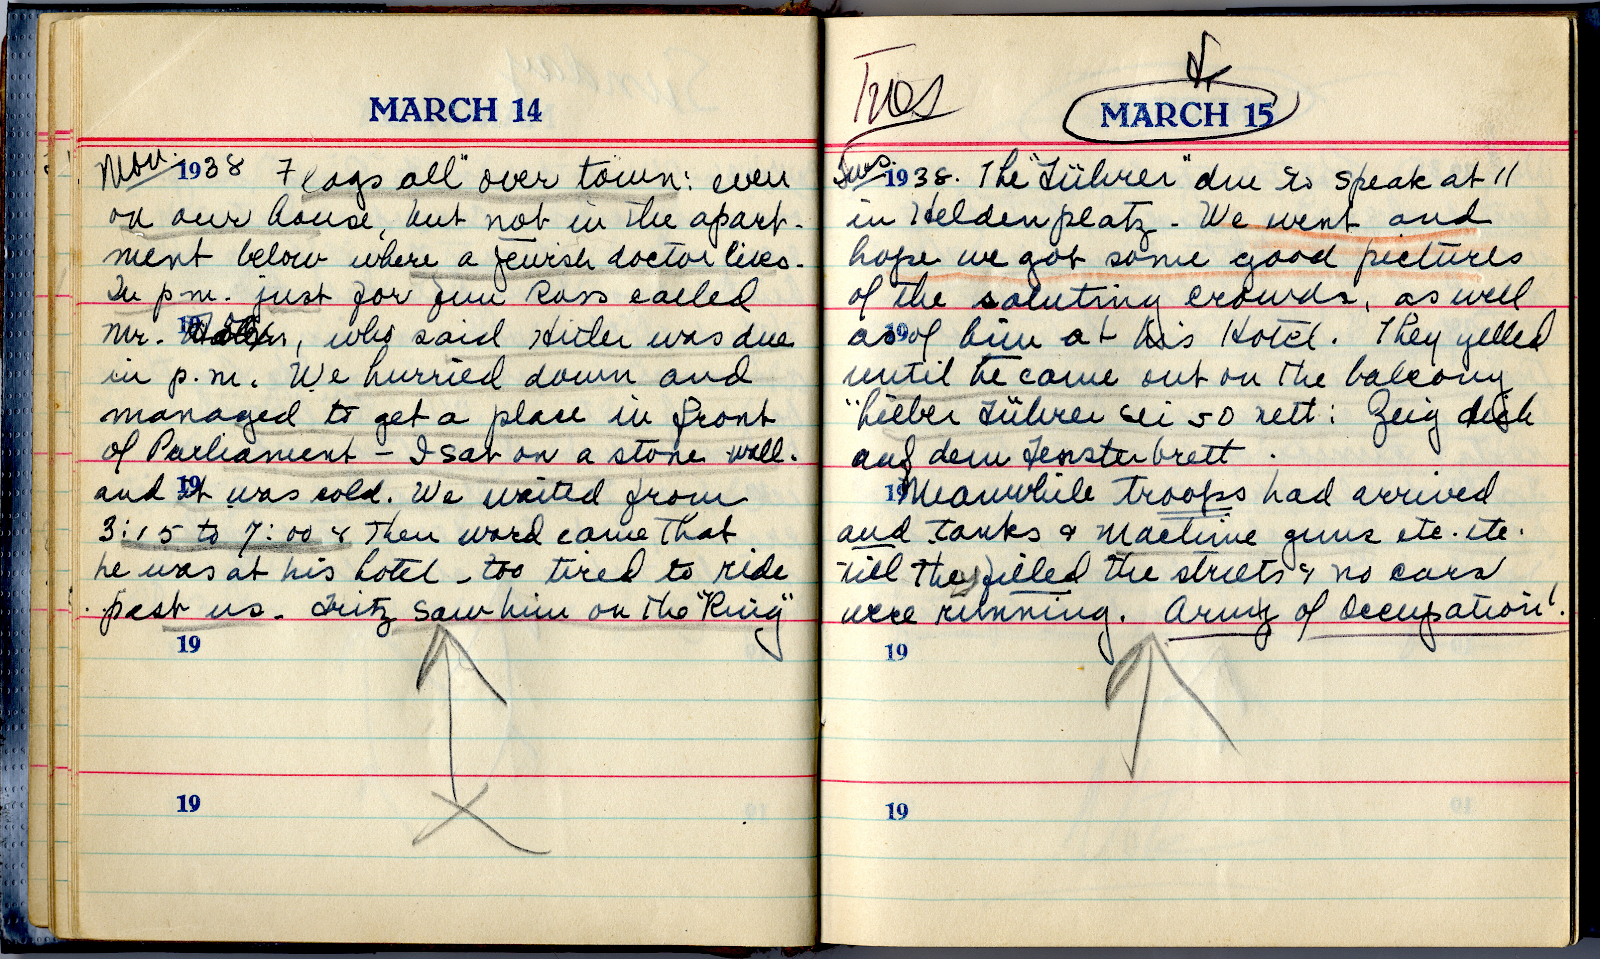 MARCH 14
Mon. 1938 Flags all over town: even
on our house, but not in the apart-
ment below where a Jewish doctor lives.
In p.m. just for fun Ross called
Mr. , who said Hitler was due
in p.m. We hurried down and
managed to get a place in front
of Parliament – I sat on a stone wall.
and it was cold. We waited from
3:15 to 7:00 & then word came that
he was at his hotel – too tired to ride
past us. Fritz saw him on the "Ring"
19
19
19
19
Tues
MARCH 15
Tues. 1938. The "Führer" due to speak at 11
in Heldenplatz – We went and
hope we got some good pictures
of the saluting crowds, as well
as of him at his Hotel. They yelled
until he came out on the balcony
"Lieber Führer sei so nett: Zeig dich
auf dem Fensterbrett.
Meanwhile troops had arrived
and tanks & machine guns etc. etc.
till they filled the streets & no cars
were running. Army of Occupation!
19
19
19
19